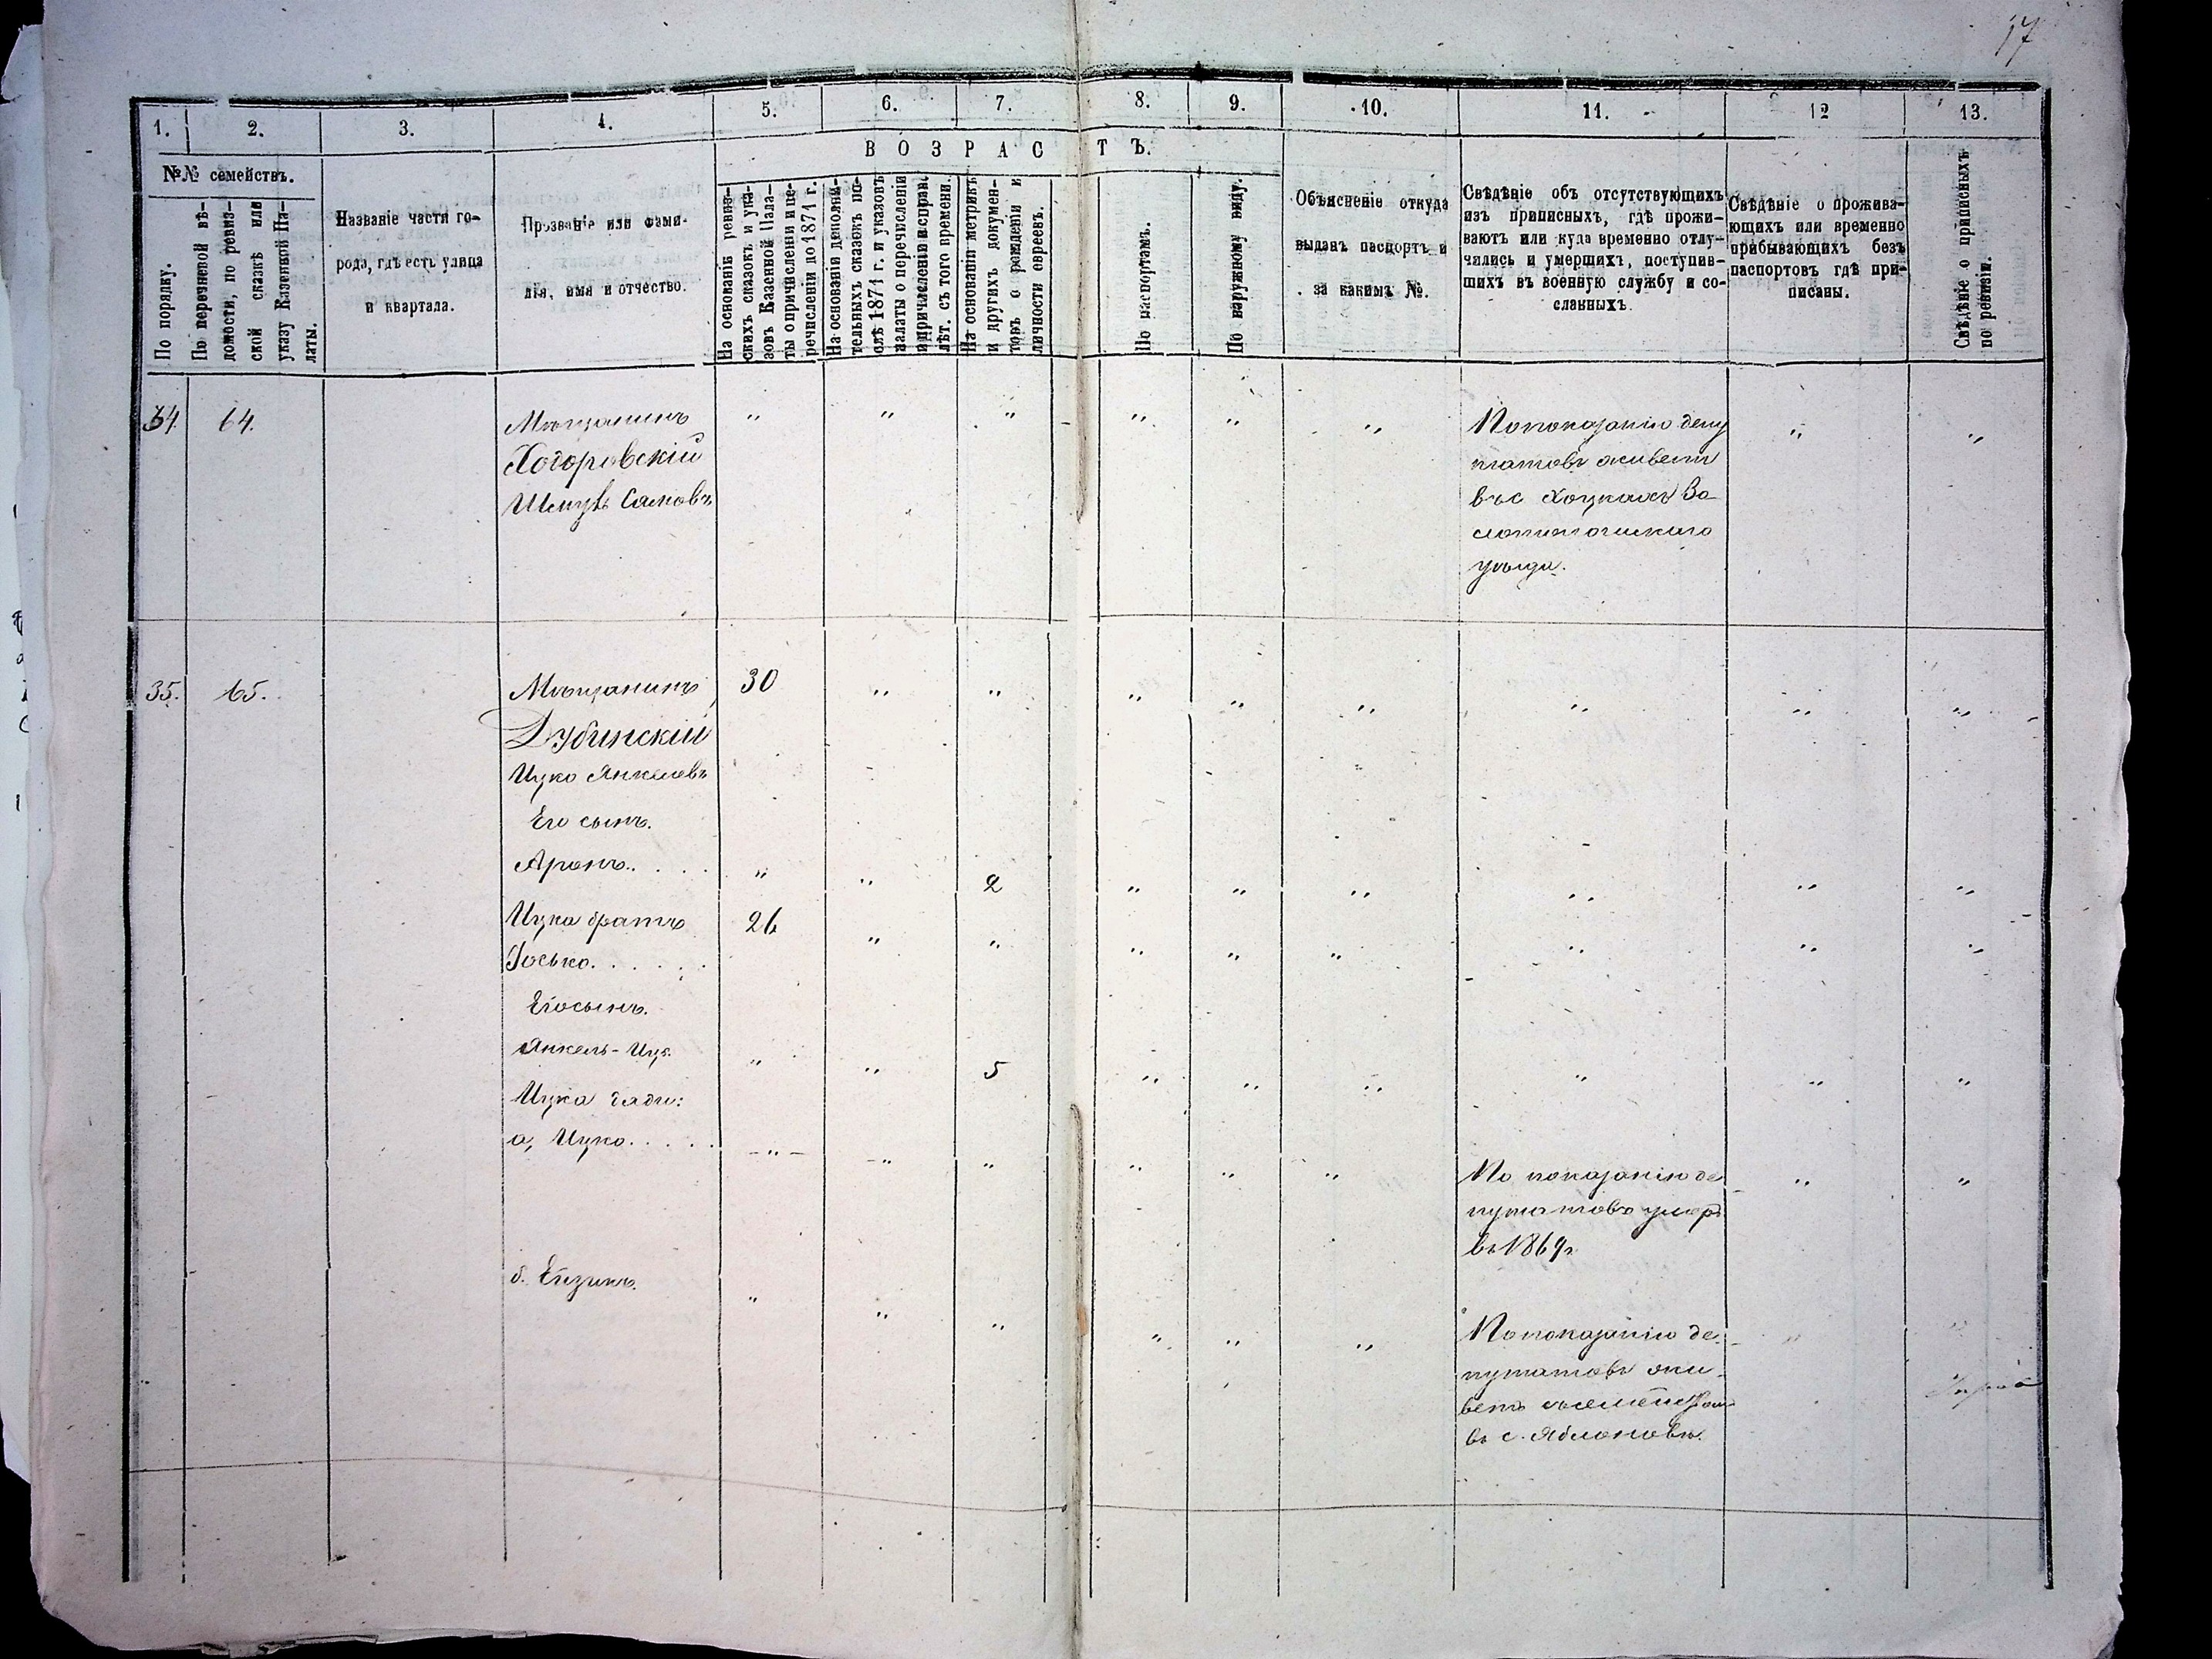 17
1. 2. 3. 4. 5. 6. 7. 8. 9. 10. 11. 12 13.
В О З Р А С Т Ъ.
№№ семействъ.
По порядку.
По перечневой вѣ-
домости, по ревиз-
ской сказкѣ или
указу Казенной Па-
латы.
Названіе части го-
рода, гдѣ есть улица
и квартала.
Прозваніе или фами-
лія, имя и отчество.
На основаніи ревиз-
скихъ сказокъ и ука-
зовъ Казенной Пала-
ты о причисленіи и пе-
речисленіи до 1871 г.
На основаніи дополни-
тельныхъ сказокъ по-
слѣ 1871 г. и указовъ
палаты о перечисленіи
и причисленіи и справ.
лѣт. съ того времени.
На основаніи метрикъ
и другихъ докумен-
товъ о рожденіи и
личности евреевъ.
По паспортамъ.
По наружному виду.
Объясненіе откуда
выданъ паспортъ и
за какимъ №.
Свѣдѣніе объ отсутствующихъ
изъ приписныхъ, гдѣ прожи-
ваютъ или куда временно отлу-
чились и умершихъ, поступив-
шихъ въ военную службу и со-
сланныхъ.
Свѣдѣніе о прожива-
ющихъ или временно
прибывающихъ безъ
паспортовъ гдѣ при-
писаны.
Свѣдѣніе о приписныхъ
по ревизіи.
34 64. Мѣщанинъ " " " " " " По показанію депу " "
Ходоровскій татовъ живетъ
Шмуль Самовъ въ с Хоцкахъ Зо
лотоношскаго
уѣзда.
35. 65. Мѣщанинъ 30 " " " " " " " "
Дубинскій
Ицко Янкелевъ
Его сынъ.
Аронъ. . . . . " " 2 " " " " " "
Ицка братъ 26 " " " " " " " "
Іосько. . . . . .
Его сынъ.
Янкель-Ицк. " " 5 " " " " " "
Ицка дяди:
а, Ицко. . . . . - " - - " " " " " По показанію де " "
путатовъ умеръ
въ 1869г
б. Ейзикъ. " " " " " " По показанію де- " "
путатовъ жи-
ветъ
въ с. Яблоновѣ.